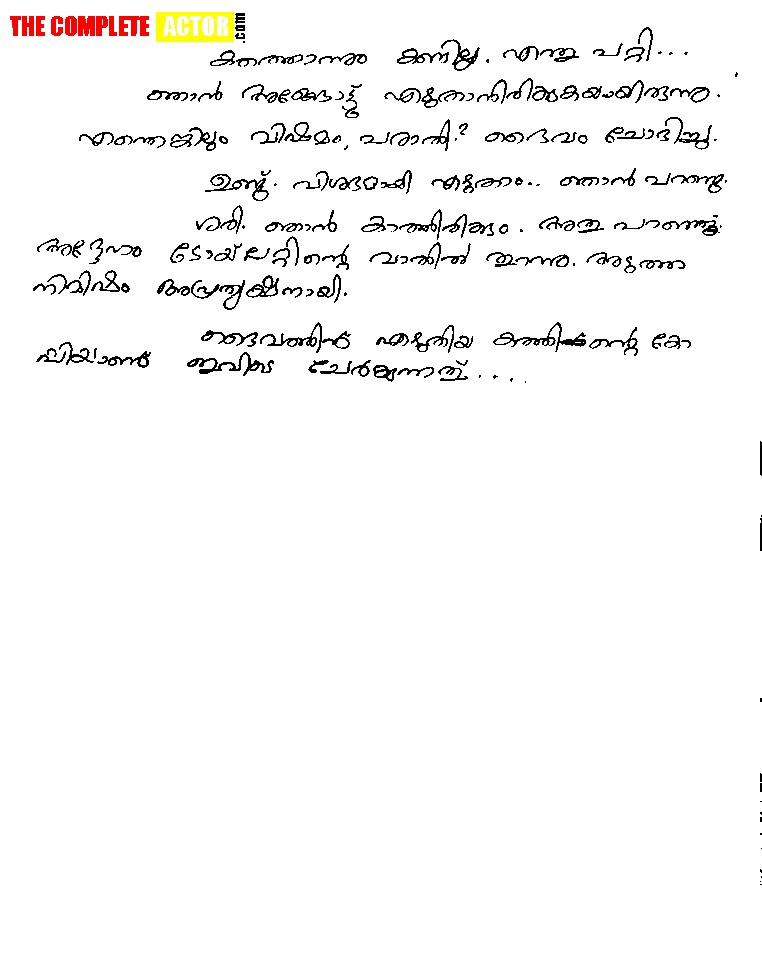 THE COMPLETE ACTOR .com
കത്തൊന്നും കണ്ടില്ല. എന്തു പറ്റി...
ഞാൻ അങ്ങോട്ട് എഴുതാനിരിക്കുകയായിരുന്നു.
എന്തെങ്കിലും വിഷമം, പരാതി? ദൈവം ചോദിച്ചു.
ഉണ്ട്. വിശദമായി എഴുതാം.. ഞാൻ പറഞ്ഞു.
ശരി. ഞാൻ കാത്തിരിക്കും. അതു പറഞ്ഞിട്ട്
അദ്ദേഹം ടോയ്‌ലറ്റിന്റെ വാതിൽ തുറന്നു. അടുത്ത
നിമിഷം അപ്രത്യക്ഷനായി.
ദൈവത്തിന് എഴുതിയ കത്തിന്റെ കോ
പ്പിയാണ് ഇവിടെ ചേർക്കുന്നത്....